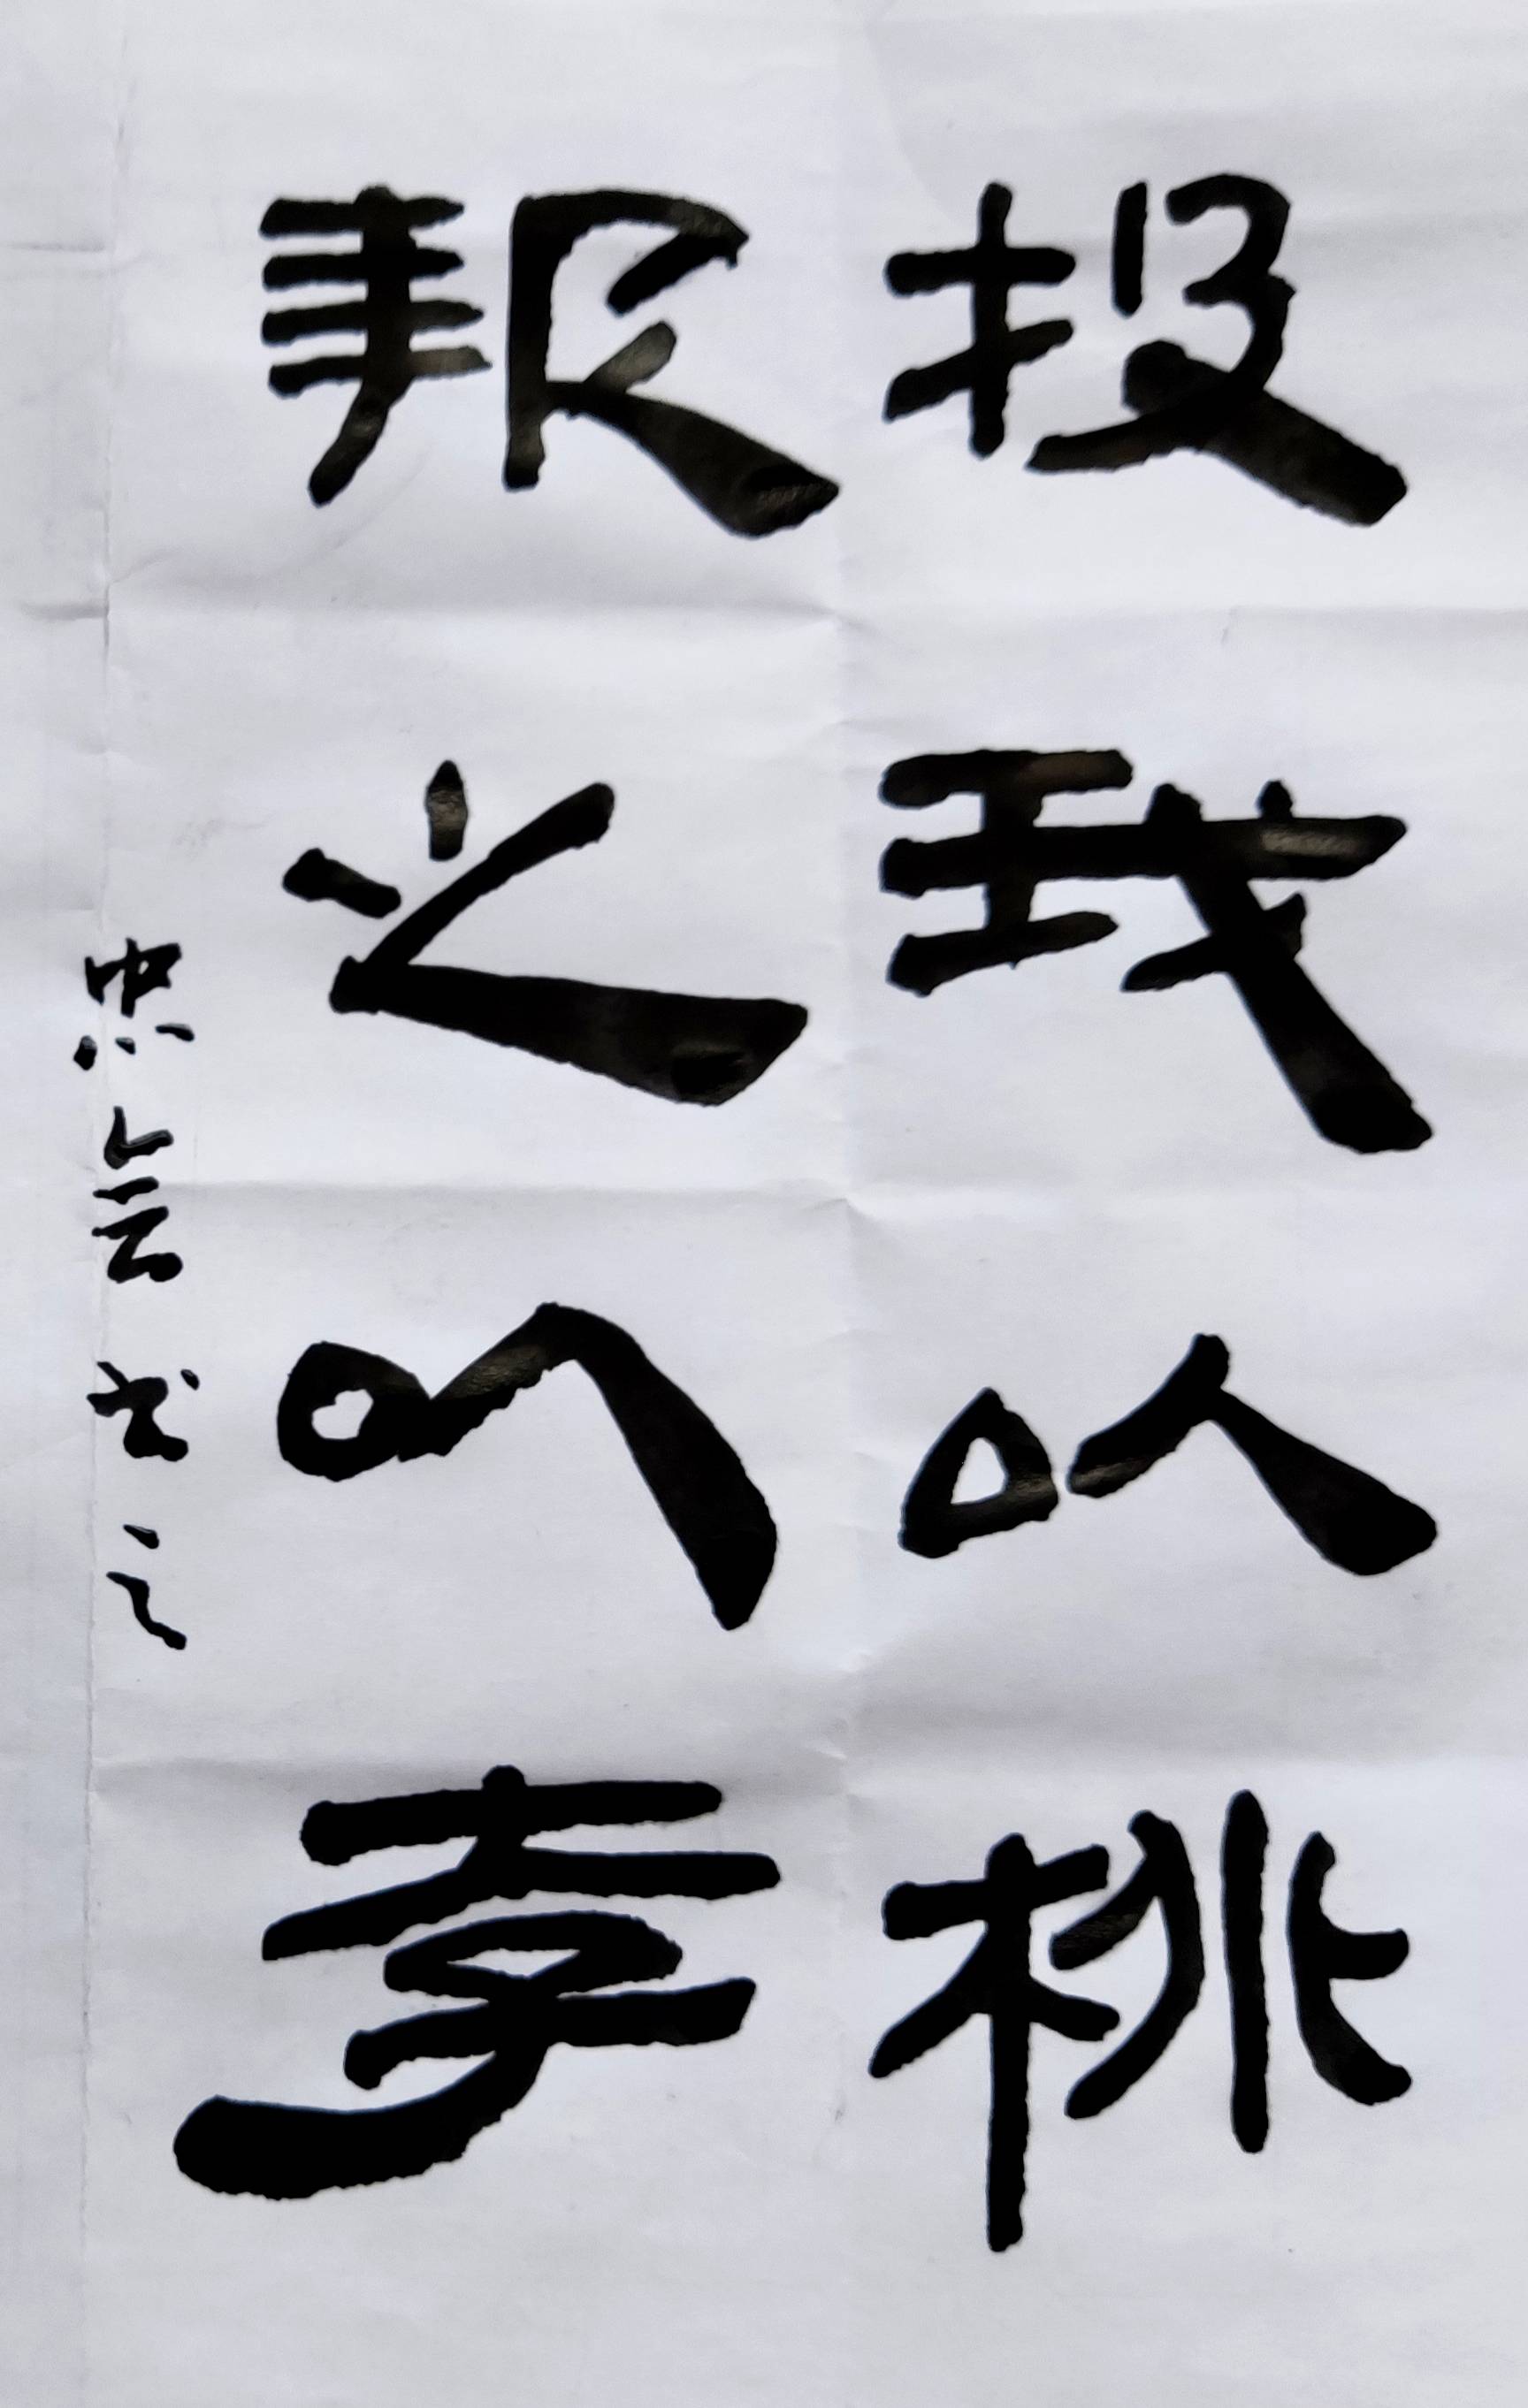 投我以桃
報之以李
忠会书之